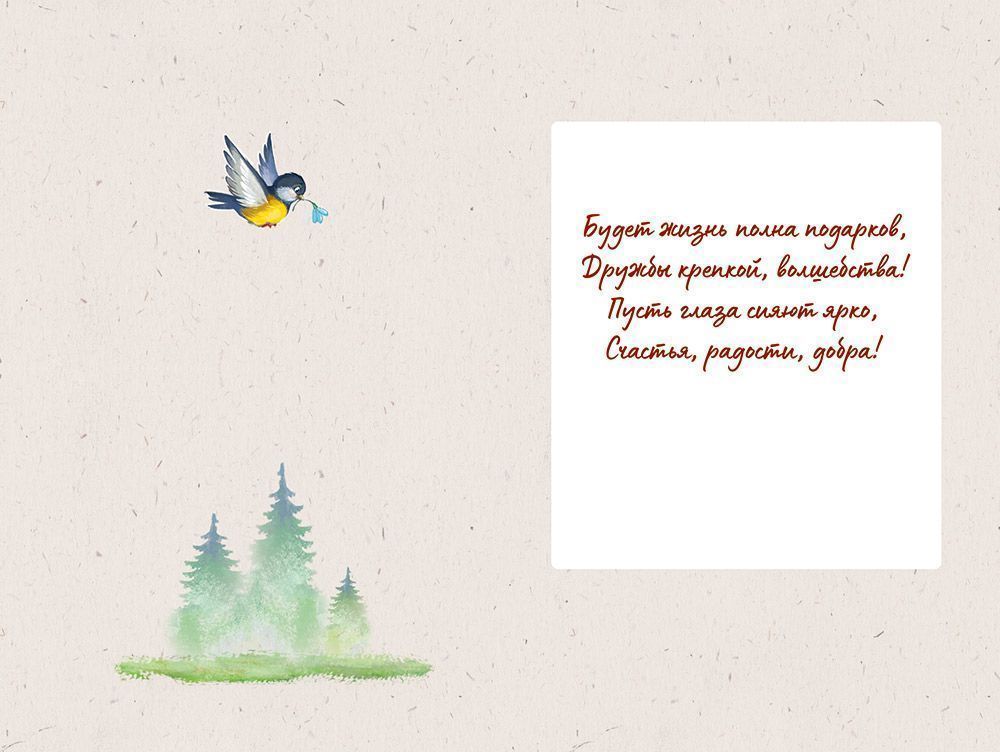 Будет жизнь полна подарков,
Дружбы крепкой, волшебства!
Пусть глаза сияют ярко,
Счастья, радости, добра!